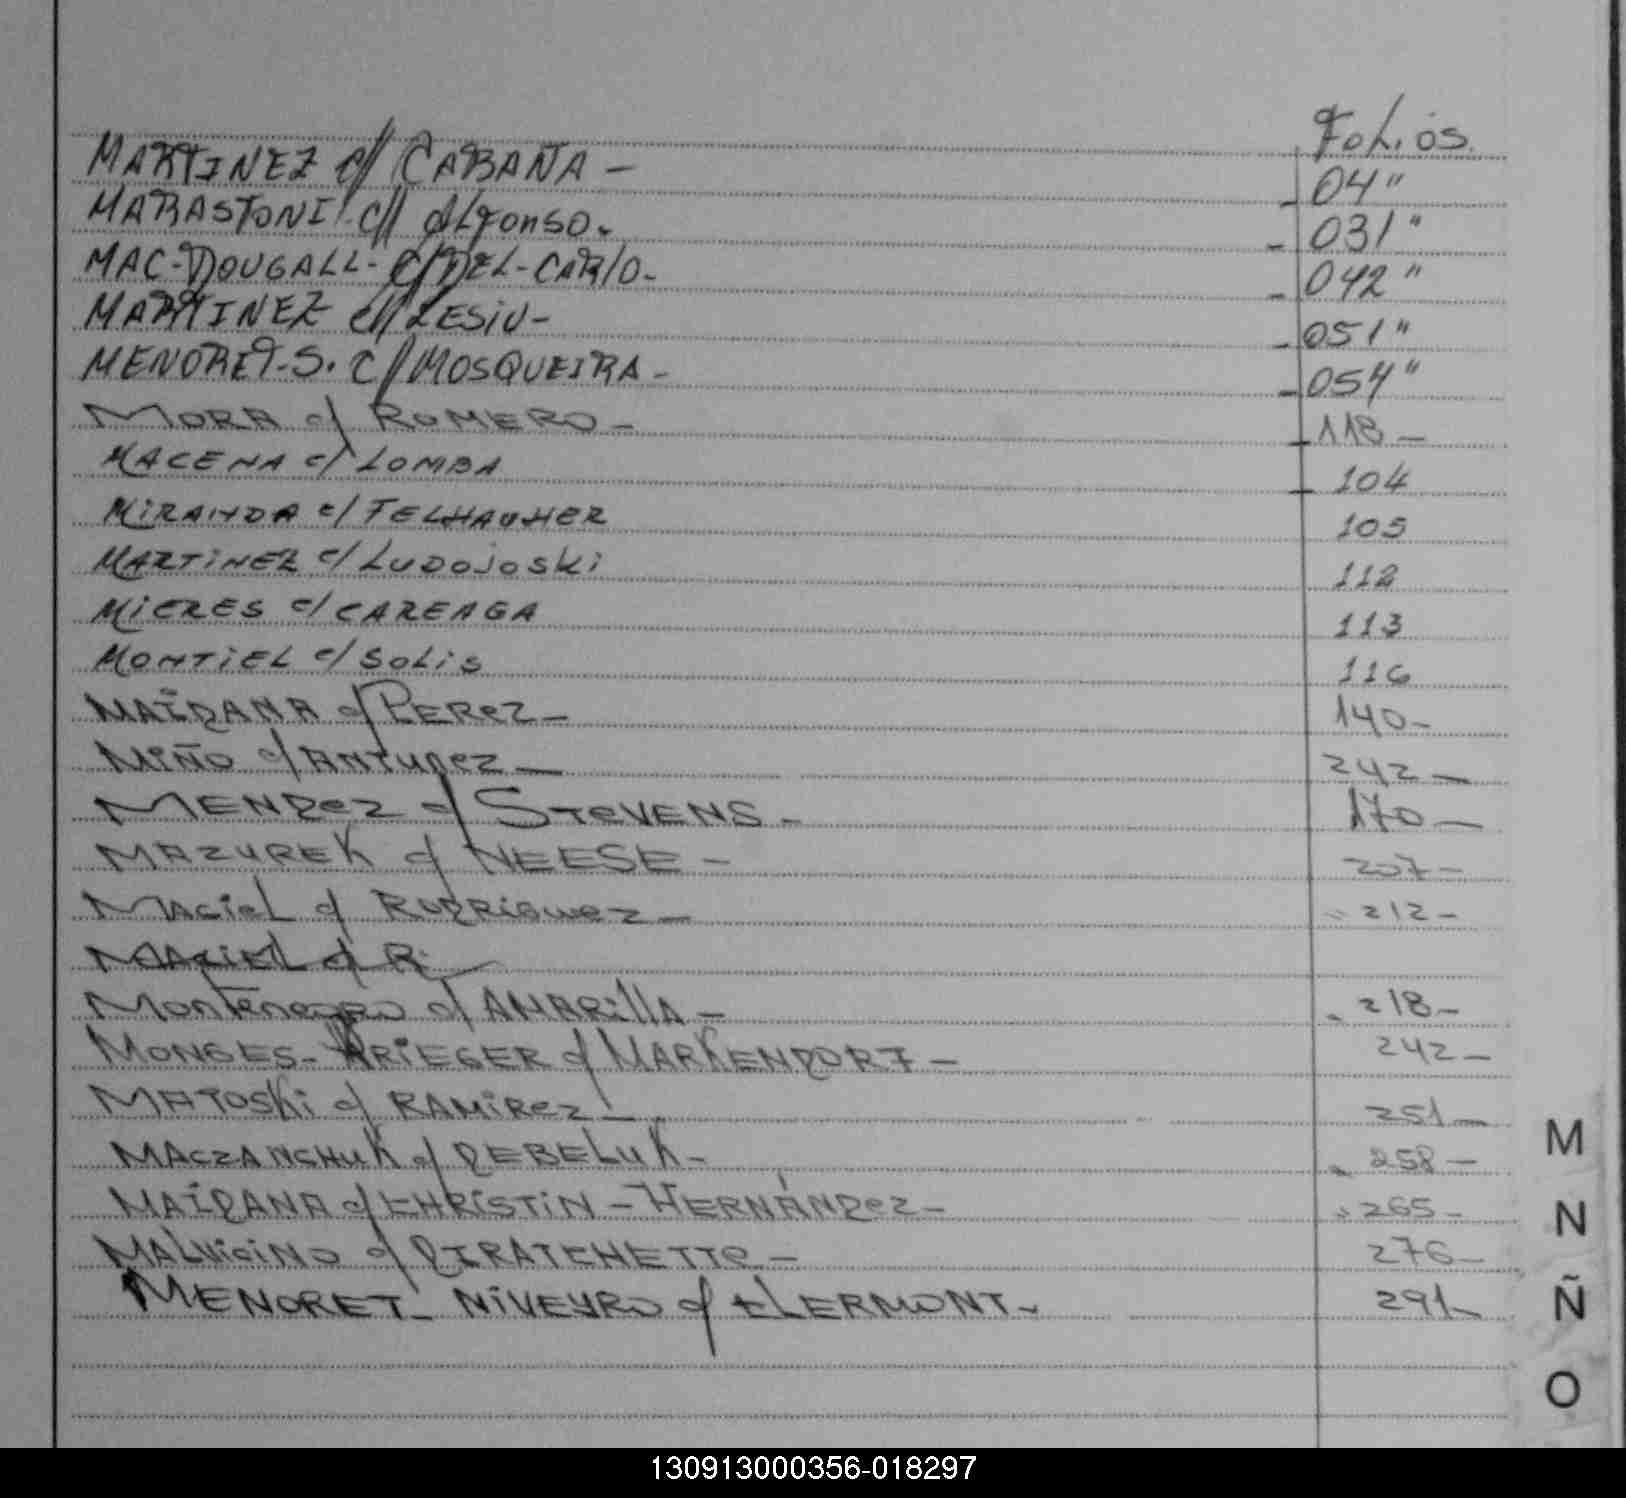 Folios.
MARTINEZ c/ CABAÑA - 04"
MARASTONI c/ Alfonso. - 031"
MAC-DOUGALL- c/ DEL-CARIO- - 042"
MARTINEZ c/ LESIU- - 051"
MENORET-S. c/ MOSQUEIRA - - 054"
MORA c/ ROMERO - 118 -
MACENA c/ LOMBA 104
MIRANDA c/ FELHAUHER 105
MARTINEZ c/ LUDOJOSKI 112
MIERES c/ CAREAGA 113
MONTIEL c/ SOLIS 116
MAIDANA c/ PEREZ - 140-
MIÑO c/ ANTUNEZ - 242-
MENDEZ c/ STEVENS - 170-
MAZUREK c/ NEESE - 207-
MACIEL c/ RODRIGUEZ - 212-
MACIEL c/ R
Montenegro c/ AMARILLA - 218-
MONGES- KRIEGER c/ MARKENDORF - 242-
MATOSKI c/ RAMIREZ - 251-
MACZANCHUK c/ DEBELUK- 258-
MAIDANA c/ CHRISTIN - HERNÁNDEZ - 265-
MALVICINO c/ DIRATCHETTE - 276-
MENORET- NIVEYRO c/ CLERMONT- 291-
M
N
Ñ
O
130913000356-018297